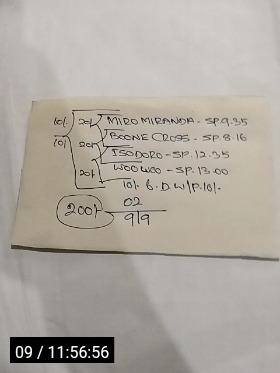 10/- 20/- MIRO MIRANDA - SP.9.35
10/- BOONE CROSS - SP.8.16
20/- ISODORO - SP.12.35
20/- WOO WOO - SP.13.00
10/- 6. D W/P.10/-
02
200/- 9/9
09 / 11:56:56